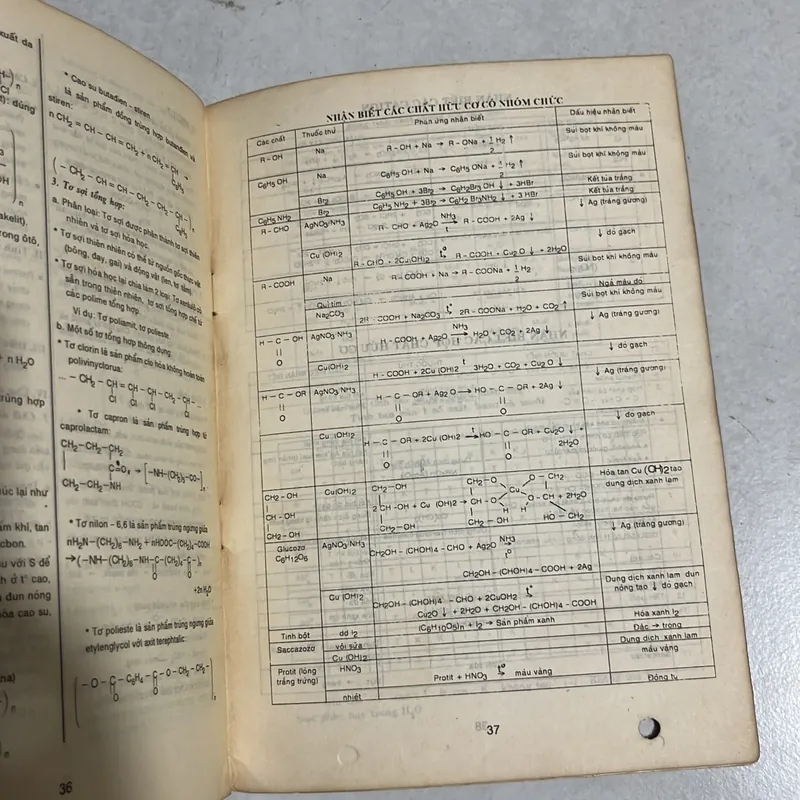 xuất da
Cl
): dùng
akelit).
rong ôtô,
+ n H₂O
trùng hợp
húc lại như
cbon.
au với S để
h ở t° cao,
i đun nóng
hóa cao su.
* Cao su butađien - stiren.
là sản phẩm đồng trùng hợp butađien và
stiren:
n CH₂ = CH – CH = CH₂ + n CH = CH₂ →
C₆H₅
(– CH₂ – CH = CH – CH₂ – CH₂ – CH –)n
C₆H₅
3. Tơ sợi tổng hợp:
a. Phân loại: Tơ sợi được phân thành tơ sợi thiên
nhiên và tơ sợi hóa học.
* Tơ sợi thiên nhiên có thể từ nguồn gốc thực vật
(bông, đay, gai) và động vật (len, tơ tằm)
* Tơ sợi hóa học lại chia làm 2 loại:
sẵn trong thiên nhiên, tơ sợi tổng hợp chế từ
các polime tổng hợp.
Ví dụ: Tơ poliamit, tơ polieste
b. Một số tơ tổng hợp thông dụng.
* Tơ clorin là sản phẩm clo hóa không hoàn toàn
polivinyclorua:
... – CH₂ – CH = CH – CH – CH – CH₂ – CH – ...
Cl Cl Cl Cl
* Tơ capron là sản phẩm trùng hợp từ
caprolactam:
CH₂–CH₂–CH₂
C=O, → [–NH–(CH₂)₅–CO–]n
CH₂–CH₂–NH
* Tơ nilon – 6,6 là sản phẩm trùng ngưng giữa
nH₂N–(CH₂)₆–NH₂ + nHOOC–(CH₂)₄–COOH
→(–NH–(CH₂)₆–NH–C–(CH₂)₄–C–)n
O O
+2n H₂O
* Tơ polieste là sản phẩm trùng ngưng giữa
etylenglycol với axit terephtalic.
– O – C – C₆H₄ – C – O – CH₂ – CH₂ –
O O
36
NHẬN BIẾT CÁC CHẤT HỮU CƠ CÓ NHÓM CHỨC
Các chất Thuốc thử Phản ứng nhận biết Dấu hiệu nhận biết
R - OH Na R - OH + Na → R - ONa + ½ H₂ ↑ Sủi bọt khí không màu
C₆H₅ OH Na C₆H₅ OH + Na → C₆H₅ ONa + ½ H₂ ↑ Sủi bọt khí không màu
Br₂ C₆H₅ OH + 3Br₂ → C₆H₂Br₃ OH ↓ + 3HBr Kết tủa trắng
C₆H₅ NH₂ Br₂ C₆H₅ NH₂ + 3Br₂ → C₆H₂ Br₃NH₂ ↓ + 3 HBr Kết tủa trắng
R - CHO AgNO₃/NH₃ R - CHO + Ag₂O NH₃ t → R - COOH + 2Ag ↓ ↓ Ag (tráng gương)
Cu (OH)₂ R - CHO + 2Cu(OH)₂ t° → R - COOH + Cu₂O ↓ + 2H₂O ↓ đỏ gạch
R - COOH Na R - COOH + Na → R - COONa + ½ H₂ Sủi bọt khí không màu
Quì tím Ngả màu đỏ
Na₂CO₃ 2R - COOH + Na₂CO₃ t° → 2R - COONa + H₂O + CO₂ ↑ Sủi bọt khí không màu
H – C – OH AgNO₃/NH₃ H - COOH + Ag₂O NH₃ t → H₂O + CO₂ + 2Ag ↓ ↓ Ag (tráng gương)
O
Cu(OH)₂ H - COOH + 2Cu (OH)₂ t° 3H₂O + CO₂ + Cu₂O ↓ ↓ đỏ gạch
H – C – OR AgNO₃/NH₃ H – C – OR + Ag₂O → HO – C – OR + 2Ag ↓ ↓ Ag (tráng gương)
O O O
Cu (OH)₂ H – C – OR + 2Cu (OH)₂ t → HO – C – OR + Cu₂O ↓ + ↓ đỏ gạch
O O 2H₂O
CH₂ - OH Cu(OH)₂ CH₂ – OH CH₂ – O O – CH₂ Hòa tan Cu (OH)₂ tạo
CH - OH 2 CH -OH + Cu (OH)₂ → CH - O Cu O – CH + 2H₂O dung dịch xanh lam
H H
CH₂ – OH CH₂ – OH CH₂ – OH HO – CH₂
Glucozơ AgNO₃/NH₃ CH₂OH – (CHOH)₄ – CHO + Ag₂O NH₃ t° → ↓ Ag (tráng gương)
C₆H₁₂O₆
CH₂OH - (CHOH)₄ - COOH + 2Ag
Cu (OH)₂ CH₂OH – (CHOH)⁴ – CHO + 2CuOH₂ t° → Dung dịch xanh lam đun
Cu₂O ↓ + 2H₂O + CH₂OH - (CHOH)₄ - COOH nóng tạo ↓ đỏ gạch
Tinh bột dd I₂ (C₆H₁₀O₅)n + I₂ → Sản phẩm xanh Hóa xanh I₂
Saccazozơ vôi sữa Đặc → trong
Cu (OH)₂ Dung dịch xanh lam
Protit (lòng HNO₃ Protit + HNO₃ t° → màu vàng màu vàng
trắng trứng) nhiệt Đông tụ
37